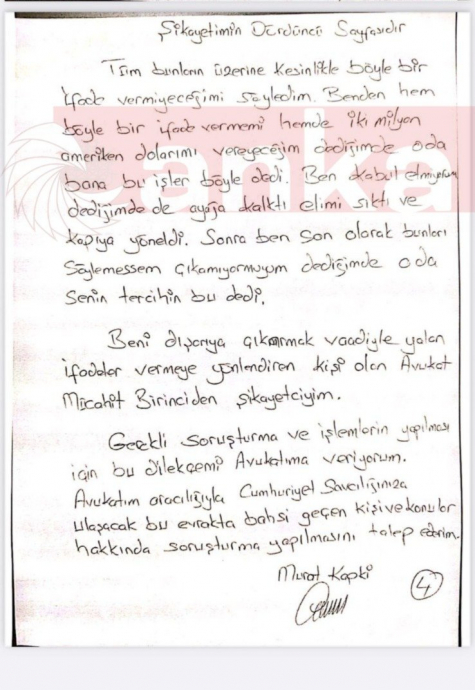 Şikayetimin Dördüncü Sayfasıdır
Tüm bunların üzerine kesinlikle böyle bir
ifade vermiyeceğimi söyledim. Benden hem
böyle bir ifade vermemi hemde iki milyon
ameriken dolarımı vereyeceğim dediğimde oda
bana bu işler böyle dedi. Ben kabul etmiyorum
dediğimde de ayağa kalktı elimi sıktı ve
kapıya yöneldi. Sonra ben son olarak bunları
söylemessem çıkamıyormuyum dediğimde oda
senin tercihin bu dedi.
Beni dışarıya çıkarmak vaadiyle yalan
ifadeler vermeye yönlendiren kişi olan Avukat
Mücahit Birinciden şikayetciyim.
Gerekli soruşturma ve işlemlerin yapılması
için bu dilekçemi Avukatıma veriyorum.
Avukatım aracılığıyla Cumhuriyet Savcılığınıza
ulaşacak bu evrakta bahsi geçen kişi ve konular
hakkında soruşturma yapılmasını talep ederim.
Murat Kapki
4
anka